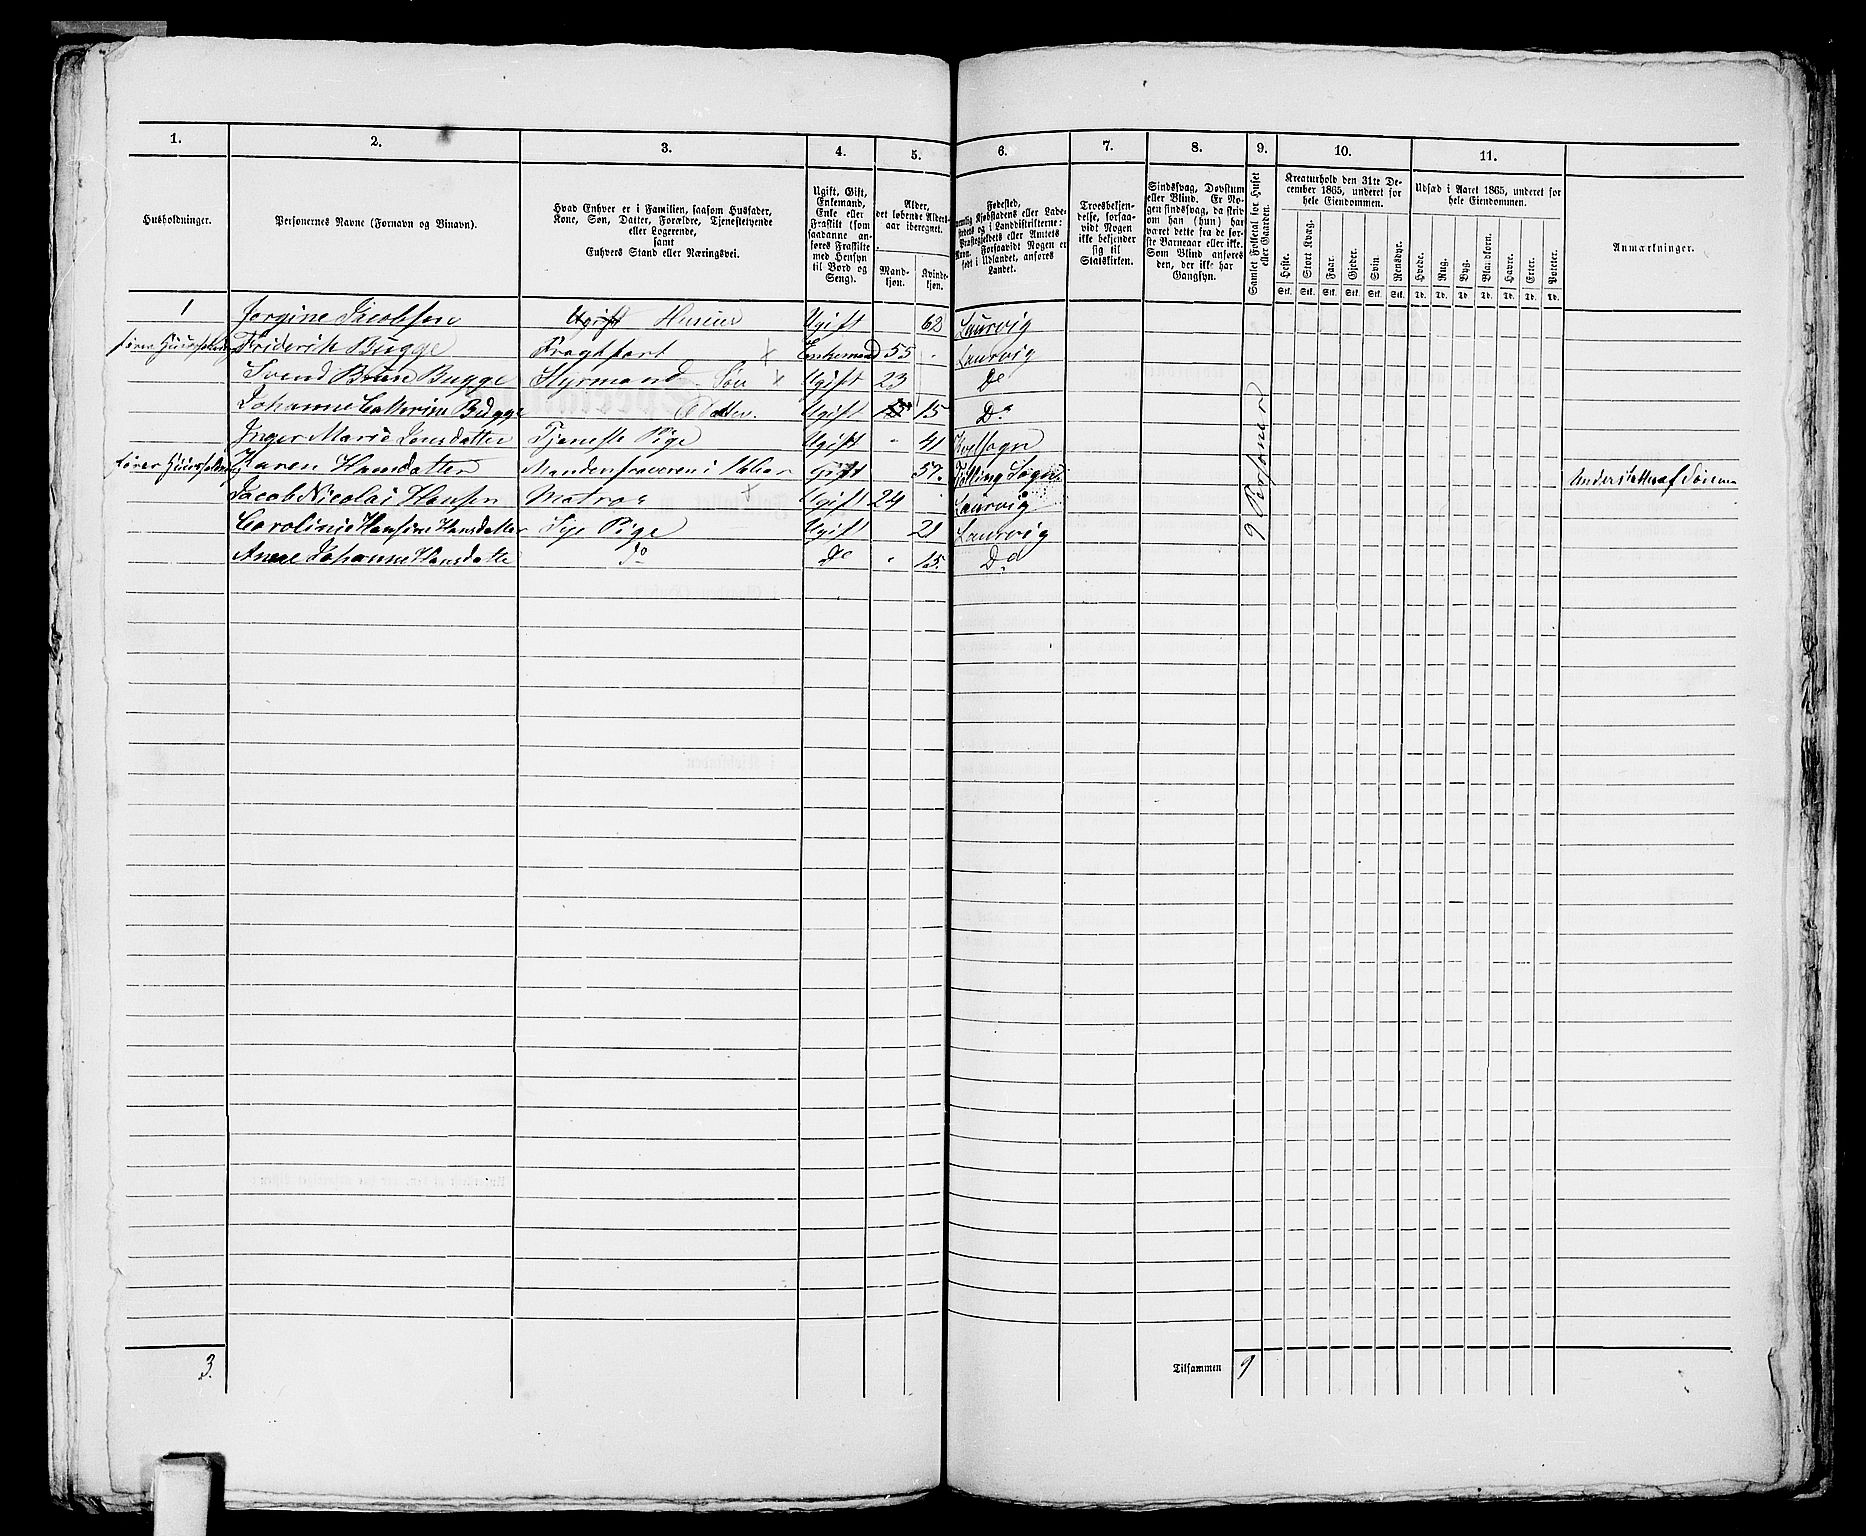 1. 2. 3. 4. 5. 6. 7. 8. 9. 10. 11.
Husholdninger.
Personernes Navne (Fornavn og Binavn).
Hvad Enhver er i Familien, saasom Husfader,
Kone, Søn, Datter, Forældre, Tjenestetyende
eller Logerende,
samt
Enhvers Stand eller Næringsvei.
Ugift, Gift,
Enkemand,
Enke eller
Fraskilt (som
saadanne an-
føres Fraskilte
med Hensyn
til Bord og
Seng).
Alder,
det løbende Alders-
aar iberegnet.
Mand-
kjøn.
Kvinde-
kjøn.
Fødested,
nemlig Kjøbstadens eller Lade-
stedets og i Landdistrikterne:
Præstegjeldets eller Amtets
Navn. Forsaavidt Nogen er
født i Udlandet, anføres
Landet.
Troesbekjen-
delse, forsaa-
vidt Nogen
ikke bekjender
sig til
Statskirken.
Sindssvag, Døvstum
eller Blind. Er No-
gen sindssvag, da skriv
om han (hun) har
været dette fra de før-
ste Barneaar eller ikke.
Som Blind anføres
den, der ikke har
Gangsyn.
Samlet Folketal for Huset
eller Gaarden.
Kreaturhold den 31te De-
cember 1865, underet for
hele Eiendommen.
Heste. Stort Kvæg. Faar. Gjeder. Svin. Rensdyr.
Stk. Stk. Stk. Stk. Stk. Stk.
Udsæd i Aaret 1865, underet for
hele Eiendommen.
Hvede. Rug. Byg. Blandkorn. Havre. Erter. Poteter.
Td. Td. Td. Td. Td. Td. Td.
Anmærkninger.
1 Jorgine Jacobsen Ugift Ugift 62 Laurvig
Friderik Bugge Fragtfart x Enkemand 55 Laurvig
Svend Brun Bugge Styrmand Søn x Ugift 23 Do
Johanne Cathrine Bugge Datter. Ugift 15 Do
Inger Marie Jensdatter Tjeneste Pige Ugift 41
Karen Hansdatter Gift 57.
Jacob Nicolai Hansen Matros x Ugift 24 Laurvig
Caroline Hansine Hansdatter Sye Pige Ugift 21 Laurvig
Anne Johanne Hansdatte do Do 15 Do
9 Personer
3. Tilsammen 9